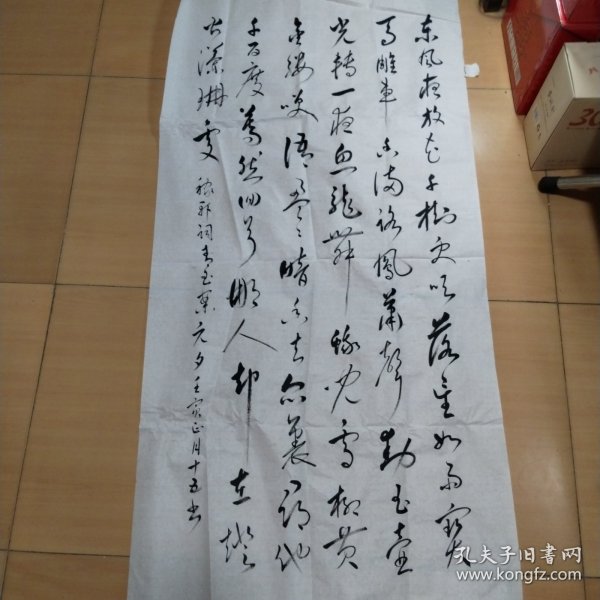 东风夜放花千树更吹落星如雨宝
马雕车香满路凤萧声动玉壶
光转一夜鱼龙舞蛾儿雪柳黄
金缕笑语盈盈暗香去众里寻他
千百度蓦然回首那人却在灯
火阑珊处
辛弃疾词青玉案元夕壬寅正月十五书
30
孔夫子旧书网
www.kongfz.com